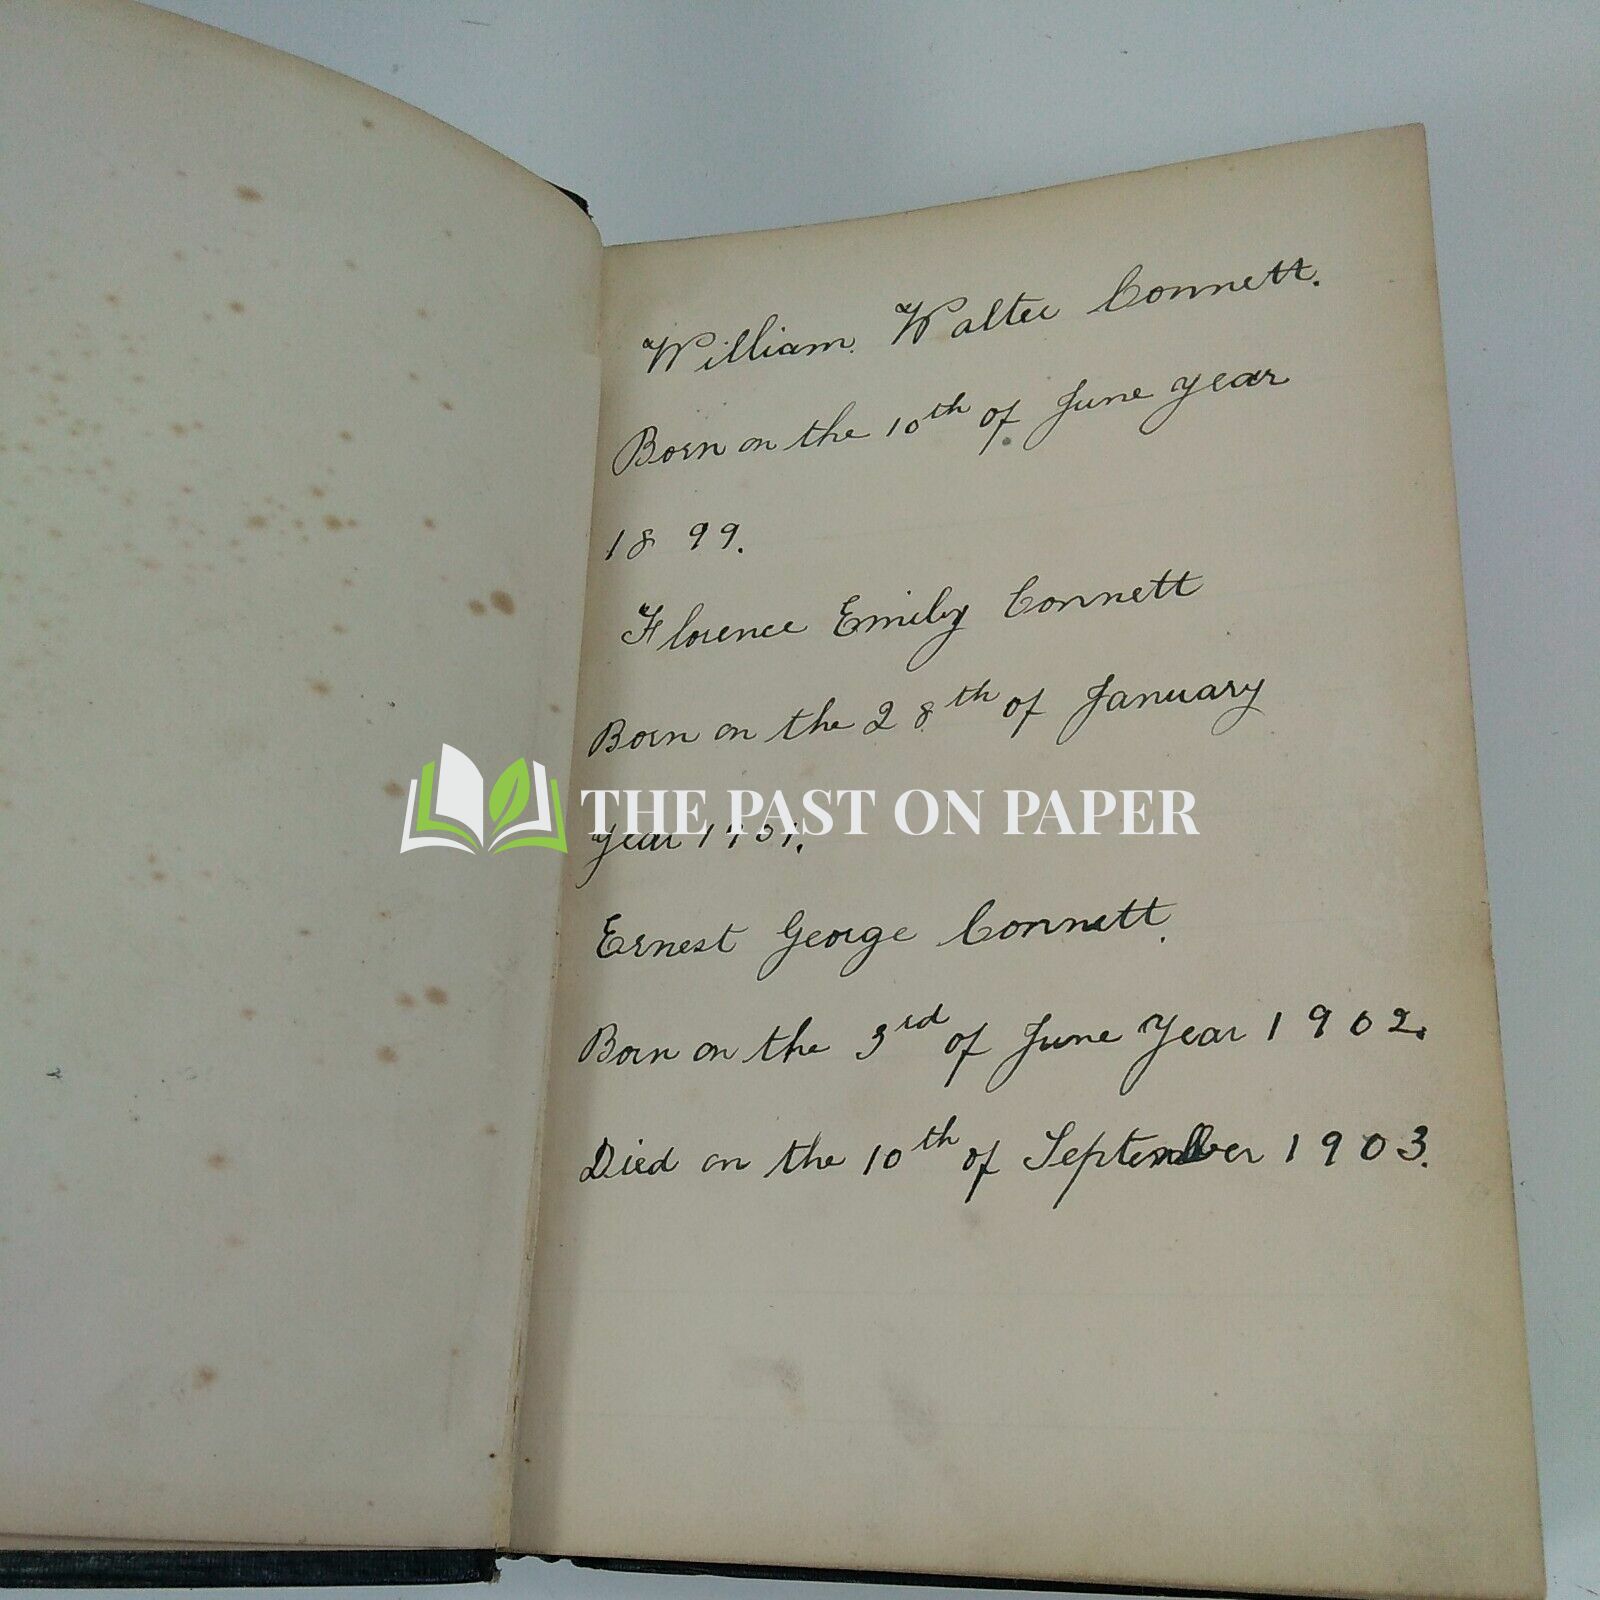 William Walter Connett.
Born on the 10th of June year
1899.
Florence Emily Connett
Born on the 28th of January
THE PAST ON PAPER
year 1901.
Ernest George Connett.
Born on the 3rd of June Year 1902.
Died on the 10th of September 1903.